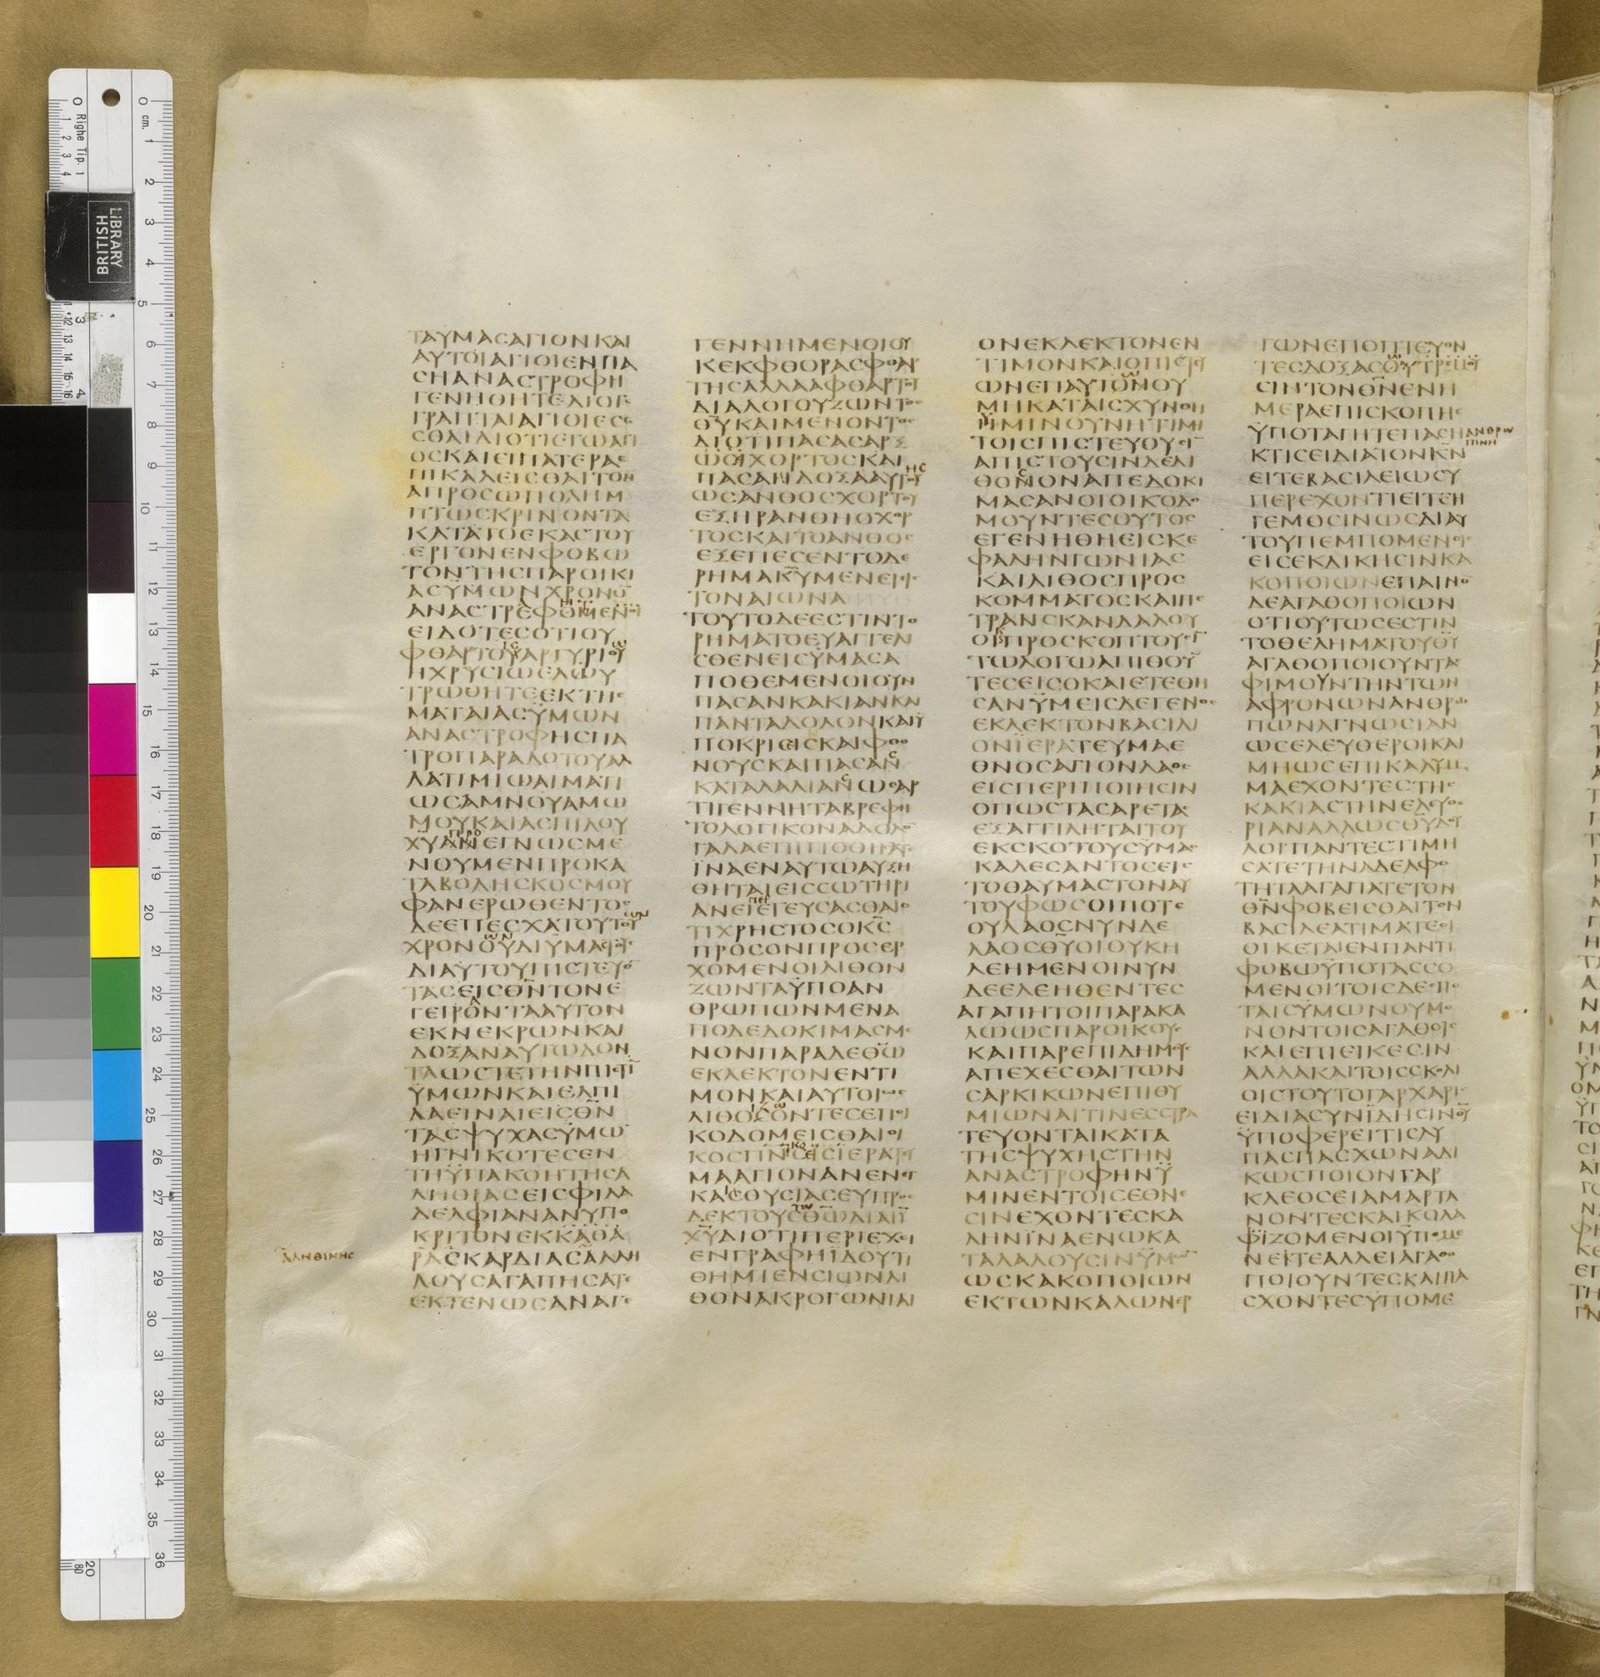 ΤΑΥΜΑϹΑΓΙΟΝΚΑΙ
ΑΥΤΟΙΑΓΙΟΙΕΝΠΑ
ϹΗΑΝΑϹΤΡΟΦΗ
ΓΕΝΗΘΗΤΕΔΙΟΤΙ
ΓΕΓΡΑΠΤΑΙΑΓΙΟΙΕϹΕ
ϹΘΑΙΔΙΟΤΙΕΓΩΑΓΙ
ΟϹΚΑΙΕΙΠΑΤΕΡΑ
ΕΠΙΚΑΛΕΙϹΘΑΙΤΟΝ
ΑΠΡΟϹΩΠΟΛΗΜ
ΠΤΩϹΚΡΙΝΟΝΤΑ
ΚΑΤΑΤΟΕΚΑϹΤΟΥ
ΕΡΓΟΝΕΝΦΟΒΩ
ΤΟΝΤΗϹΠΑΡΟΙΚΙ
ΑϹΥΜΩΝΧΡΟΝΟ̅
ΑΝΑϹΤΡΕΦΟΜΕΝΟΙ
ΕΙΔΟΤΕϹΟΤΙΟΥ
ΦΘΑΡΤΟΥΑΡΓΥΡΙΟΥ
ΗΧΡΥϹΙΩΕΛΥ
ΤΡΩΘΗΤΕΕΚΤΗϹ
ΜΑΤΑΙΑϹΫΜΩΝ
ΑΝΑϹΤΡΟΦΗϹΠΑ
ΤΡΟΠΑΡΑΔΟΤΟΥΑΛ
ΛΑΤΙΜΙΩΑΙΜΑΤΙ
ΩϹΑΜΝΟΥΑΜΩ
ΜΟΥΚΑΙΑϹΠΙΛΟΥ
Χ̅Υ̅ΑΝΕΓΝΩϹΜΕ
ΝΟΥΜΕΝΠΡΟΚΑ
ΤΑΒΟΛΗϹΚΟϹΜΟΥ
ΦΑΝΕΡΩΘΕΝΤΟϹ
ΔΕΕΠΕϹΧΑΤΟΥΤΟΥ
ΧΡΟΝΟΥΔΙΥΜΑϹ
ΔΙΑΥΤΟΥΠΙϹΤΕΥΟ̅
ΤΑϹΕΙϹΘ̅Ν̅ΤΟΝΕ
ΓΕΙΡΟΝΤΑΑΥΤΟΝ
ΕΚΝΕΚΡΩΝΚΑΙ
ΔΟΞΑΝΑΥΤΩΔΟΝ
ΤΑΩϹΤΕΤΗΝΠΙϹΤΙ̅
ΫΜΩΝΚΑΙΕΛΠΙ
ΔΑΕΙΝΑΙΕΙϹΘ̅Ν̅
ΤΑϹΨΥΧΑϹΫΜΩ̅
ΗΓΝΙΚΟΤΕϹΕΝ
ΤΗΫΠΑΚΟΗΤΗϹΑ
ΛΗΘΙΑϹΕΙϹΦΙΛΑ
ΔΕΛΦΙΑΝΑΝΥΠΟ
ΚΡΙΤΟΝΕΚΚΑΘΑ
ΑΛΗΘΙΝΗϹ
ΡΑϹΚΑΡΔΙΑϹΑΛΛΗ
ΛΟΥϹΑΓΑΠΗϹΑΤΕ
ΕΚΤΕΝΩϹΑΝΑΓΕ
ΓΕΝΝΗΜΕΝΟΙΟΥ
ΚΕΚΦΘΟΡΑϹΦΘΑΡ
ΤΗϹΑΛΛΑΑΦΘΑΡΤΟΥ
ΔΙΑΛΟΓΟΥΖΩΝΤΟϹ
Θ̅Υ̅ΚΑΙΜΕΝΟΝΤΟϹ
ΔΙΟΤΙΠΑϹΑϹΑΡΞ
ΩϹΧΟΡΤΟϹΚΑΙ
ΠΑϹΑΗΔΟΞΑΑΥΤΟΥ
ΩϹΑΝΘΟϹΧΟΡΤΟΥ
ΕΞΗΡΑΝΘΗΟΧΟΡ
ΤΟϹΚΑΙΤΟΑΝΘΟϹ
ΕΞΕΠΕϹΕΝΤΟΔΕ
ΡΗΜΑΚ̅Υ̅ΜΕΝΕΙΕΙϹ
ΤΟΝΑΙΩΝΑ
ΤΟΥΤΟΔΕΕϹΤΙΝΤΟ
ΡΗΜΑΤΟΕΥΑΓΓΕΛΙ
ϹΘΕΝΕΙϹΫΜΑϹΑ
ΠΟΘΕΜΕΝΟΙΟΥΝ
ΠΑϹΑΝΚΑΚΙΑΝΚΑΙ
ΠΑΝΤΑΔΟΛΟΝΚΑΙΫ
ΠΟΚΡΙϹΙϹΚΑΙΦΘΟ
ΝΟΥϹΚΑΙΠΑϹΑΝ
ΚΑΤΑΛΑΛΙΑΝΩϹΑΡ
ΤΙΓΕΝΝΗΤΑΒΡΕΦΗ
ΤΟΛΟΓΙΚΟΝΑΔΟΛΟ̅
ΓΑΛΑΕΠΙΠΟΘΗϹΑΤΕ
ΪΝΑΕΝΑΥΤΩΑΥΞΗ
ΘΗΤΑΙΕΙϹϹΩΤΗΡΙ
ΑΝΕΙΕΓΕΥϹΑϹΘΑΙ
ΟΤΙΧΡΗϹΤΟϹΟΚ̅Ϲ̅
ΠΡΟϹΟΝΠΡΟϹΕΡ
ΧΟΜΕΝΟΙΛΙΘΟΝ
ΖΩΝΤΑΫΠΟΑΝ
ΘΡΩΠΩΝΜΕΝΑ
ΠΟΔΕΔΟΚΙΜΑϹΜΕ
ΝΟΝΠΑΡΑΔΕΘ̅Ω̅
ΕΚΛΕΚΤΟΝΕΝΤΙ
ΜΟΝΚΑΙΑΥΤΟΙΩϹ
ΛΙΘΟΙΖΟΝΤΕϹΕΠΟΙ
ΚΟΔΟΜΕΙϹΘΑΙΟΙ
ΚΟϹΠΝ̅Ϲ̅ΕΙϹΪΕΡΑΤΕΥ
ΜΑΑΓΙΟΝΑΝΕΝΕΓ
ΚΑΙΘΥϹΙΑϹΕΥΠΡΟϹ
ΔΕΚΤΟΥϹΘ̅Ω̅ΔΙΑΙ̅Υ̅
Χ̅Υ̅ΔΙΟΤΙΠΕΡΙΕΧΕΙ
ΕΝΓΡΑΦΗΪΔΟΥΤΙ
ΘΗΜΙΕΝϹΙΩΝΛΙ
ΘΟΝΑΚΡΟΓΩΝΙΑΙ
ΟΝΕΚΛΕΚΤΟΝΕΝ
ΤΙΜΟΝΚΑΙΟΠΙϹΤΕΥ
ΩΝΕΠΑΥΤΟΝΟΥ
ΜΗΚΑΤΑΙϹΧΥΝΘΗ
ΫΜΙΝΟΥΝΗΤΙΜΗ
ΤΟΙϹΠΙϹΤΕΥΟΥϹΙ̅
ΑΠΙϹΤΟΥϹΙΝΔΕΛΙ
ΘΟΝΟΝΑΠΕΔΟΚΙ
ΜΑϹΑΝΟΙΟΙΚΟΔΟ
ΜΟΥΝΤΕϹΟΥΤΟϹ
ΕΓΕΝΗΘΗΕΙϹΚΕ
ΦΑΛΗΝΓΩΝΙΑϹ
ΚΑΙΛΙΘΟϹΠΡΟϹ
ΚΟΜΜΑΤΟϹΚΑΙΠΕ
ΤΡΑΝϹΚΑΝΔΑΛΟΥ
ΟΙΠΡΟϹΚΟΠΤΟΥϹΙ̅
ΤΩΛΟΓΩΑΠΙΘΟΥ̅
ΤΕϹΕΙϹΟΚΑΙΕΤΕΘΗ
ϹΑΝΫΜΕΙϹΔΕΓΕΝΟϹ
ΕΚΛΕΚΤΟΝΒΑϹΙΛΙ
ΟΝΪΕΡΑΤΕΥΜΑΕ
ΘΝΟϹΑΓΙΟΝΛΑΟϹ
ΕΙϹΠΕΡΙΠΟΙΗϹΙΝ
ΟΠΩϹΤΑϹΑΡΕΤΑϹ
ΕΞΑΓΓΙΛΗΤΑΙΤΟΥ
ΕΚϹΚΟΤΟΥϹΥΜΑϹ
ΚΑΛΕϹΑΝΤΟϹΕΙϹ
ΤΟΘΑΥΜΑϹΤΟΝΑΥ
ΤΟΥΦΩϹΟΙΠΟΤΕ
ΟΥΛΑΟϹΝΥΝΔΕ
ΛΑΟϹΘ̅Υ̅ΟΙΟΥΚΗ
ΛΕΗΜΕΝΟΙΝΥΝ
ΔΕΕΛΕΗΘΕΝΤΕϹ
ΑΓΑΠΗΤΟΙΠΑΡΑΚΑ
ΛΩΩϹΠΑΡΟΙΚΟΥϹ
ΚΑΙΠΑΡΕΠΙΔΗΜΟΥϹ
ΑΠΕΧΕϹΘΑΙΤΩΝ
ϹΑΡΚΙΚΩΝΕΠΙΘΥ
ΜΙΩΝΑΙΤΙΝΕϹϹΤΡΑ
ΤΕΥΟΝΤΑΙΚΑΤΑ
ΤΗϹΨΥΧΗϹΤΗΝ
ΑΝΑϹΤΡΟΦΗΝΫ
ΜΙΝΕΝΤΟΙϹΕΘΝΕ
ϹΙΝΕΧΟΝΤΕϹΚΑ
ΛΗΝΪΝΑΕΝΩΚΑ
ΤΑΛΑΛΟΥϹΙΝΫΜΩ̅
ΩϹΚΑΚΟΠΟΙΩΝ
ΕΚΤΩΝΚΑΛΩΝΕΡ
ΓΩΝΕΠΟΠΤΕΥΟΝ
ΤΕϹΔΟΞΑϹΟΥΤΡΕΜΟΥ
ϹΙΝΤΟΝΘ̅Ν̅ΕΝΗ
ΜΕΡΑΕΠΙϹΚΟΠΗϹ
ΫΠΟΤΑΓΗΤΕΠΑϹΗ
ΑΝΘΡΩ
ΠΙΝΗ
ΚΤΙϹΕΙΔΙΑΤΟΝΚ̅Ν̅
ΕΙΤΕΒΑϹΙΛΕΙΩϹΥ
ΠΕΡΕΧΟΝΤΙΕΙΤΕΗ
ΓΕΜΟϹΙΝΩϹΔΙΑΥ
ΤΟΥΠΕΜΠΟΜΕΝΟΙϹ
ΕΙϹΕΚΔΙΚΗϹΙΝΚΑ
ΚΟΠΟΙΩΝΕΠΑΙΝΟ̅
ΔΕΑΓΑΘΟΠΟΙΩΝ
ΟΤΙΟΥΤΩϹΕϹΤΙΝ
ΤΟΘΕΛΗΜΑΤΟΥΘ̅Υ̅
ΑΓΑΘΟΠΟΙΟΥΝΤΑϹ
ΦΙΜΟΥΝΤΗΝΤΩΝ
ΑΦΡΟΝΩΝΑΝΘΡΩ
ΠΩΝΑΓΝΩϹΙΑΝ
ΩϹΕΛΕΥΘΕΡΟΙΚΑΙ
ΜΗΩϹΕΠΙΚΑΛΥΜ
ΜΑΕΧΟΝΤΕϹΤΗϹ
ΚΑΚΙΑϹΤΗΝΕΛΕΥΘΕ
ΡΙΑΝΑΛΛΩϹΘ̅Υ̅ΔΟΥ
ΛΟΙΠΑΝΤΕϹΤΙΜΗ
ϹΑΤΕΤΗΝΑΔΕΛΦΟ
ΤΗΤΑΑΓΑΠΑΤΕΤΟΝ
Θ̅Ν̅ΦΟΒΕΙϹΘΑΙΤΟΝ
ΒΑϹΙΛΕΑΤΙΜΑΤΕΟΙ
ΟΙΚΕΤΑΙΕΝΠΑΝΤΙ
ΦΟΒΩΫΠΟΤΑϹϹΟ
ΜΕΝΟΙΤΟΙϹΔΕϹΠΟ
ΤΑΙϹΥΜΩΝΟΥΜΟ
ΝΟΝΤΟΙϹΑΓΑΘΟΙϹ
ΚΑΙΕΠΙΕΙΚΕϹΙΝ
ΑΛΛΑΚΑΙΤΟΙϹϹΚΟΛΙ
ΟΙϹΤΟΥΤΟΓΑΡΧΑΡΙϹ
ΕΙΔΙΑϹΥΝΪΔΗϹΙΝΘ̅Υ̅
ΫΠΟΦΕΡΕΙΤΙϹΛΥ
ΠΑϹΠΑϹΧΩΝΑΔΙ
ΚΩϹΠΟΙΟΝΓΑΡ
ΚΛΕΟϹΕΙΑΜΑΡΤΑ
ΝΟΝΤΕϹΚΑΙΚΟΛΑ
ΦΙΖΟΜΕΝΟΙΫΠΟΜΕ
ΝΕΙΤΕΑΛΛΕΙΑΓΑΘΟ
ΠΟΙΟΥΝΤΕϹΚΑΙΠΑ
ϹΧΟΝΤΕϹΫΠΟΜΕ